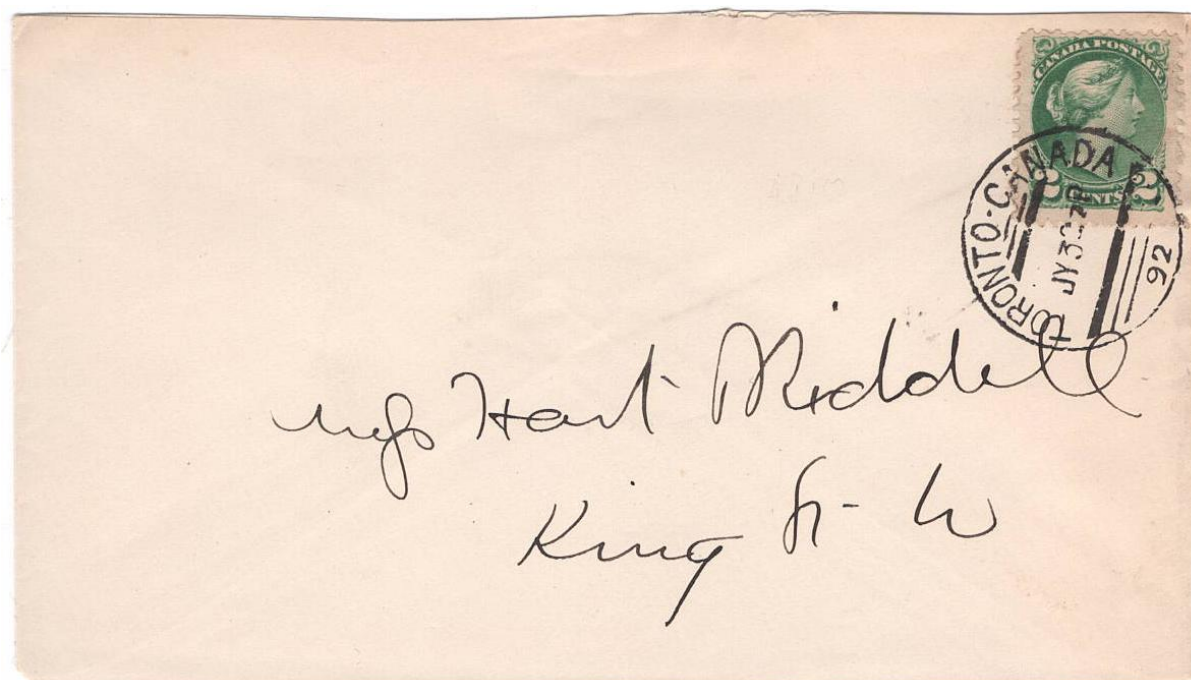 CANADA POSTAGE
2 CENTS 2
TORONTO-CANADA
JY
92
Hart Riddell
King St- W